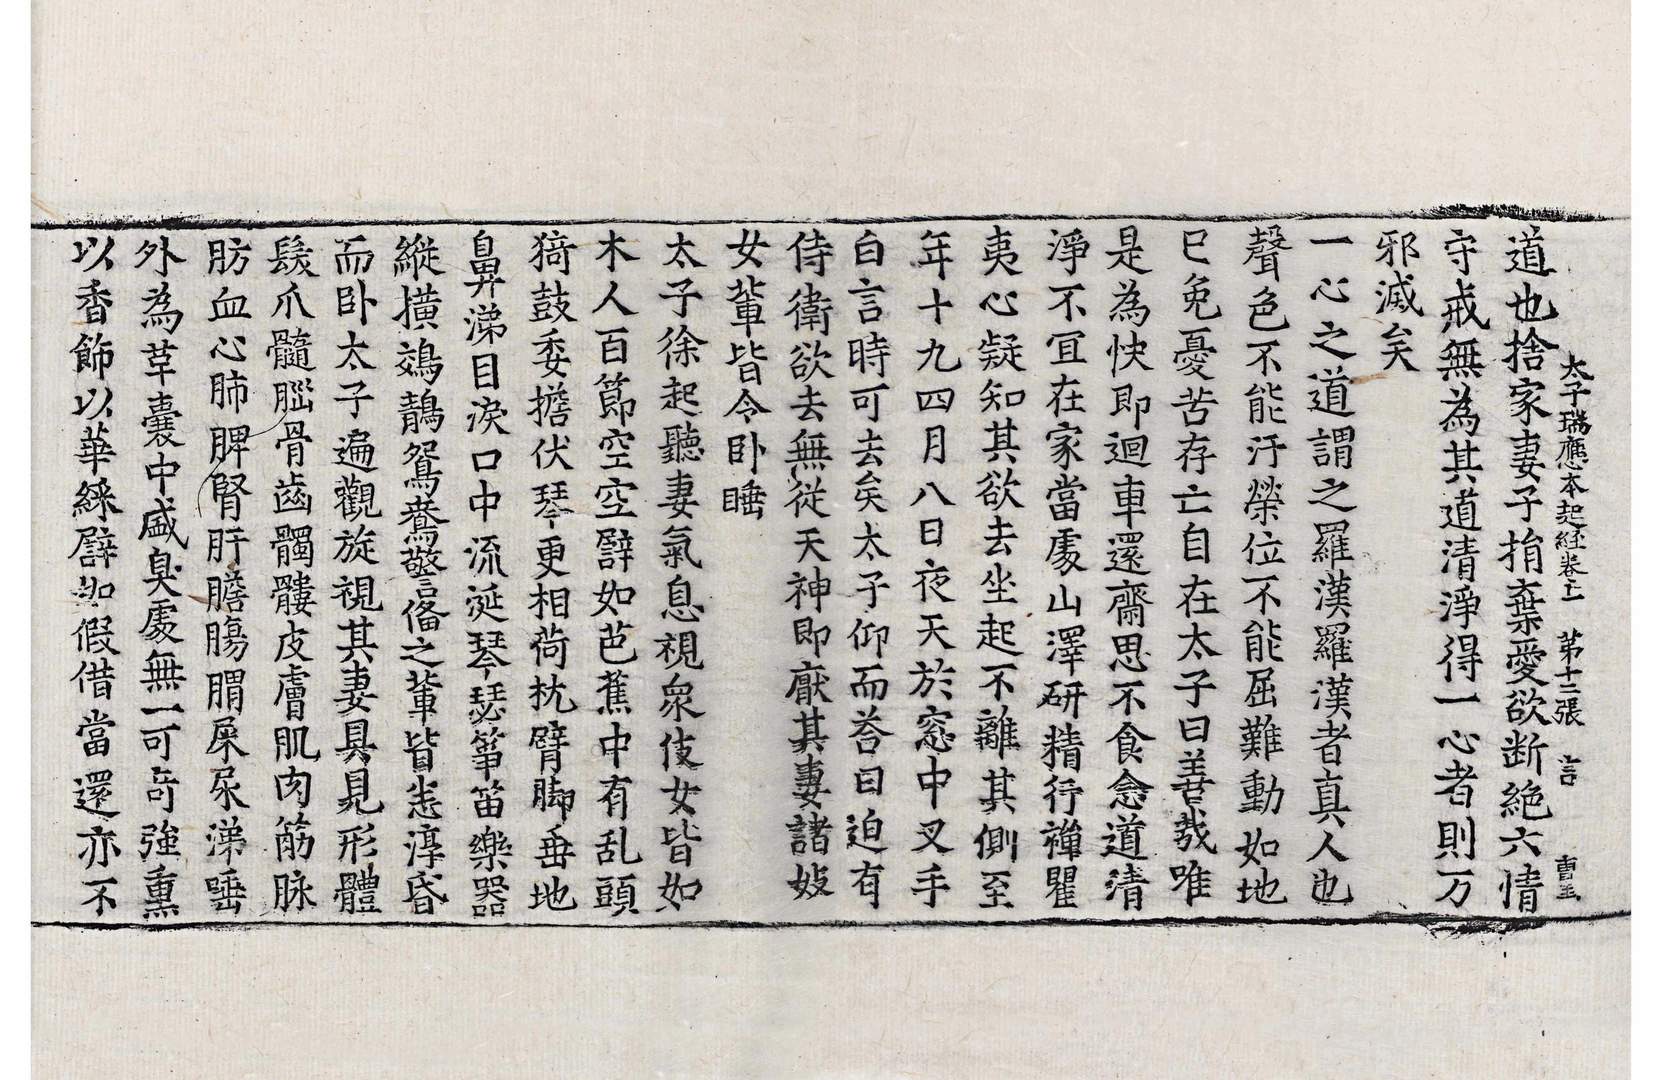 太子瑞應本起経卷上　第十二張　言　曹玉
道也捨家妻子捐棄愛欲断絶六情
守戒無為其道清淨得一心者則万
邪滅矣
一心之道謂之羅漢羅漢者真人也
聲色不能汙榮位不能屈難動如地
已免憂苦存亡自在太子曰善哉唯
是為快即迴車還齋思不食念道清
淨不宜在家當處山澤研精行禪瞿
夷心疑知其欲去坐起不離其側至
年十九四月八日夜天於窓中叉手
白言時可去矣太子仰而荅曰迫有
侍衛欲去無從天神即厭其妻諸妓
女輩皆令卧睡
太子徐起聽妻氣息視衆伎女皆如
木人百節空空譬如芭蕉中有乱頭
猗鼓委擔伏琴更相荷枕臂脚垂地
鼻涕目淚口中流涎琴瑟箏笛樂器
縱橫鵁鶄鴛鴦警俻之輩皆悉淳昏
而卧太子遍觀旋視其妻具見形體
髮爪髓腦骨齒髑髏皮膚肌肉筋脉
肪血心肺脾腎肝膽膓胃屎尿涕唾
外為革囊中盛臭處無一可奇強熏
以香飾以華綵譬如假借當還亦不